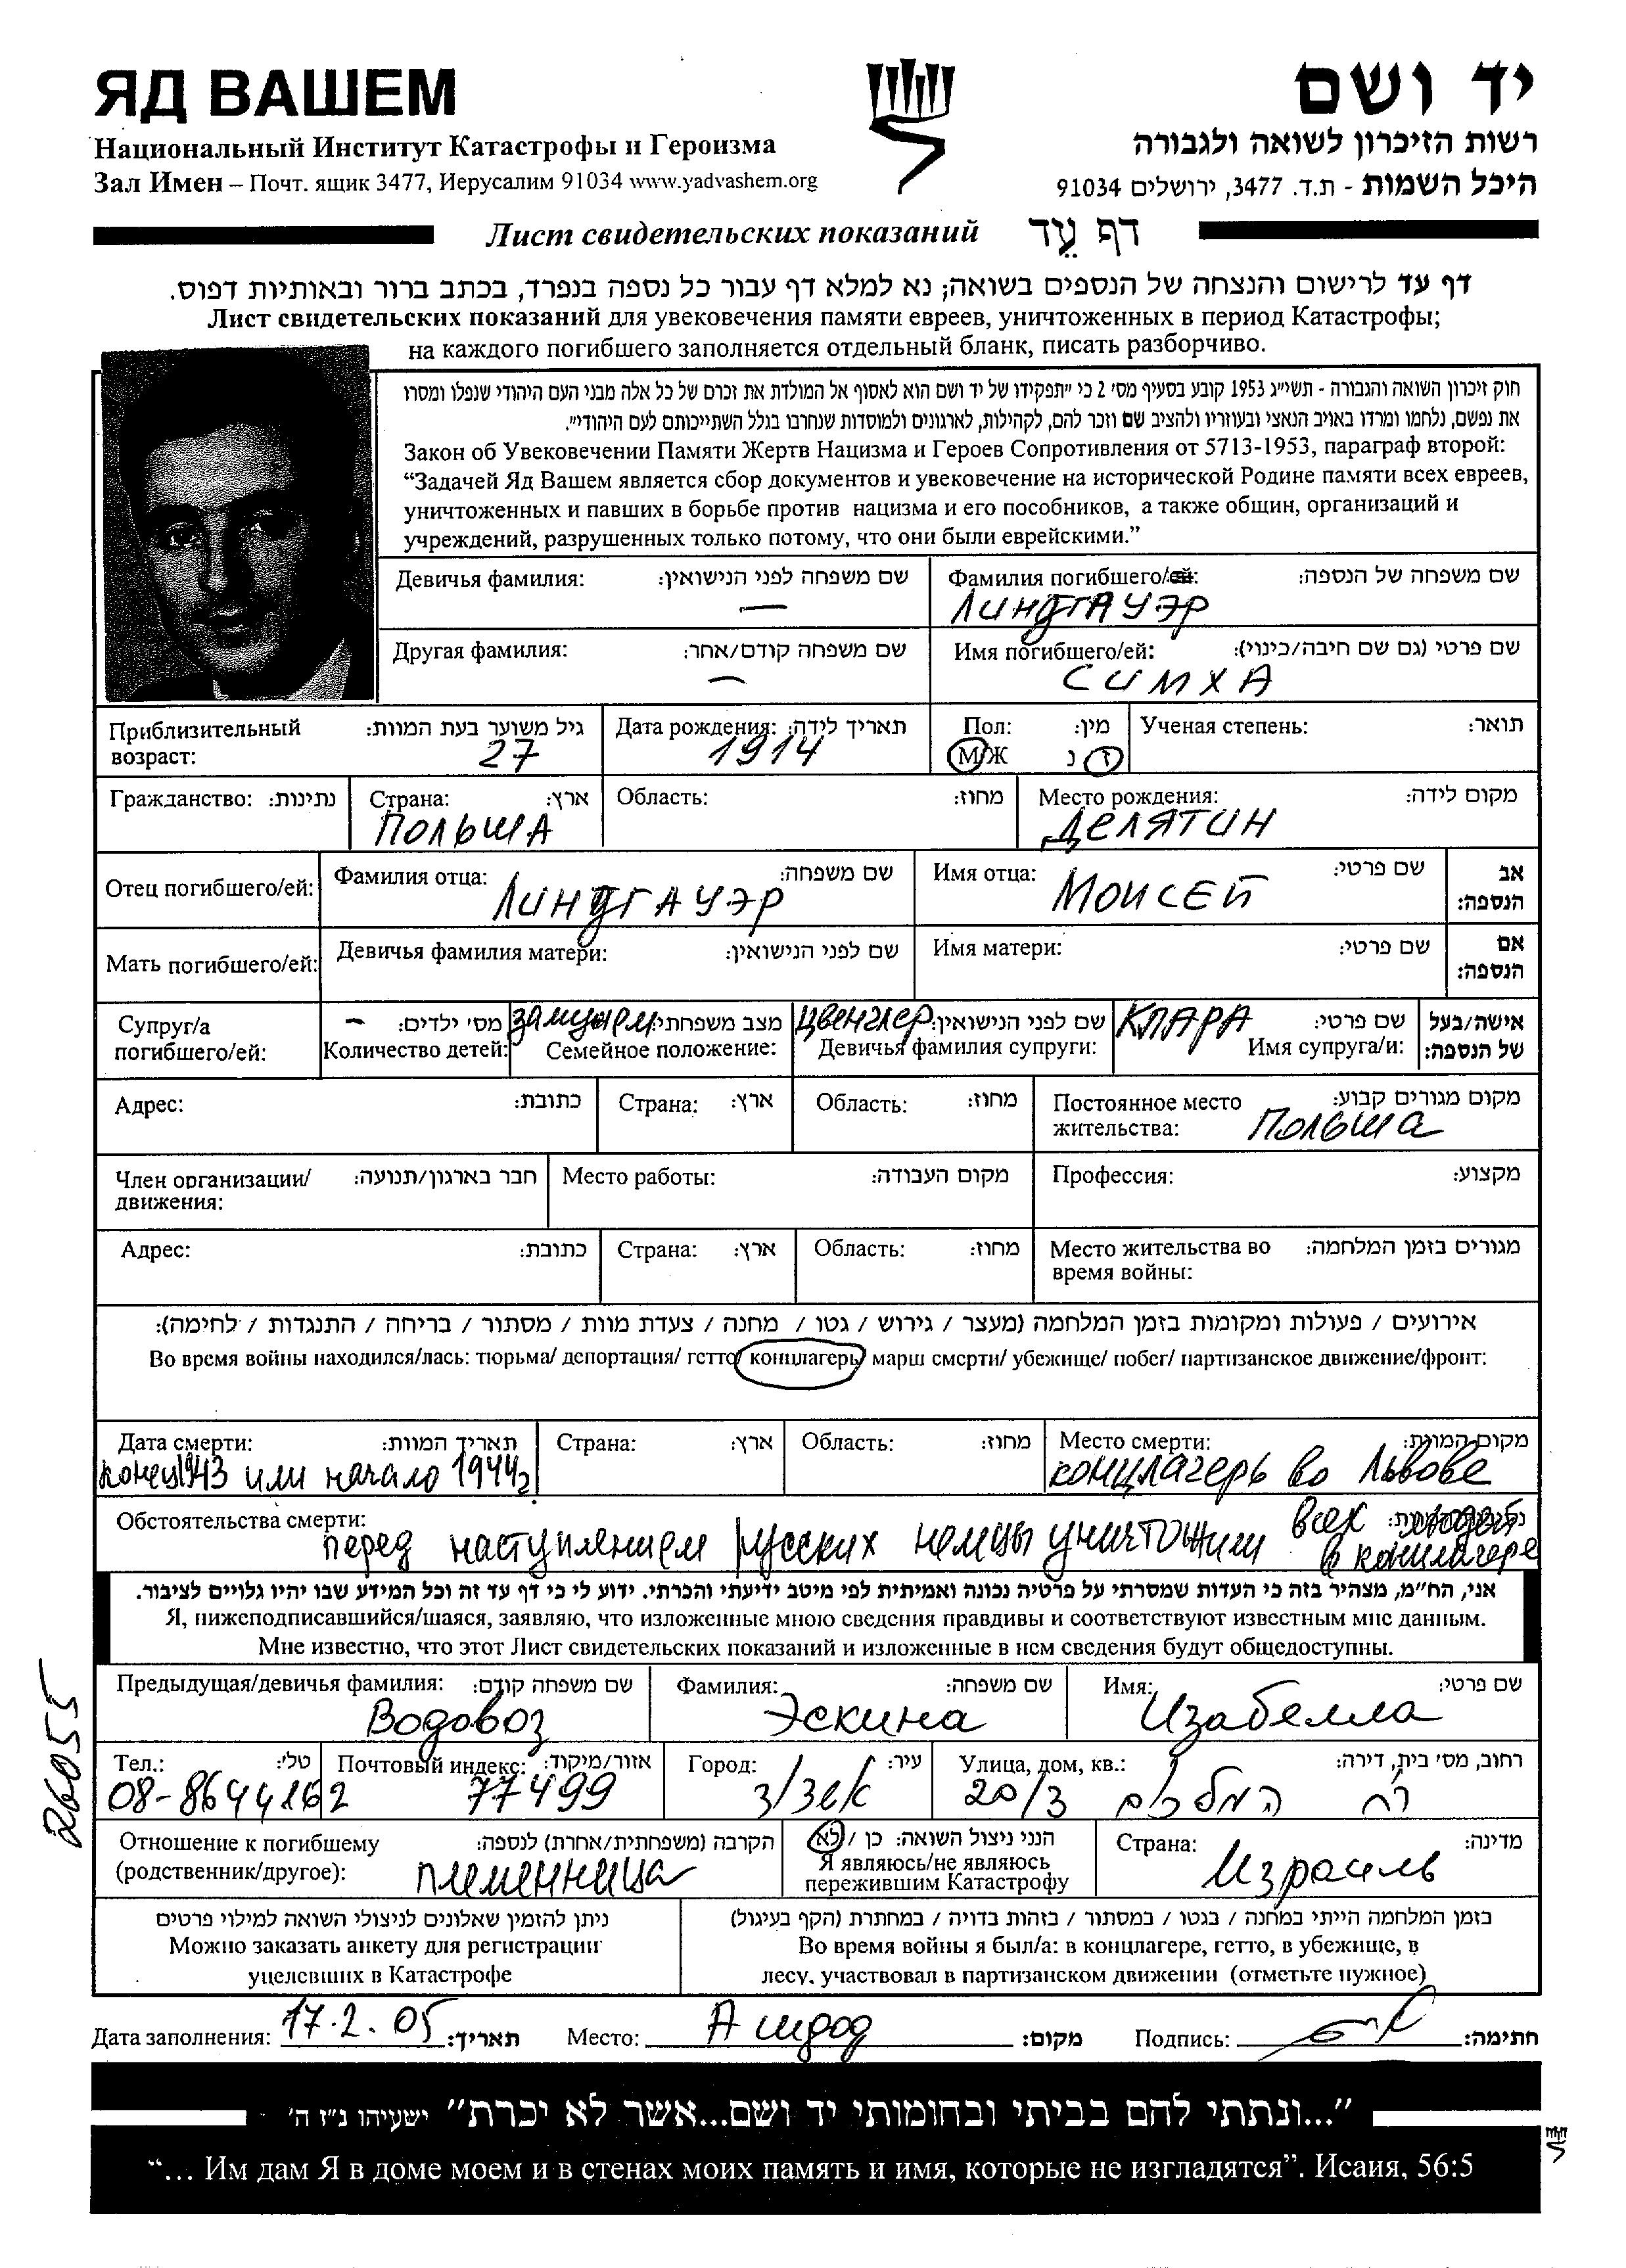 ЯД ВАШЕМ
יד ושם
Национальный Институт Катастрофы и Героизма
רשות הזיכרון לשואה ולגבורה
Зал Имен – Почт. ящик 3477, Иерусалим 91034 www.yadvashem.org
היכל השמות - ת.ד. 3477, ירושלים 91034
Лист свидетельских показаний דף עֵד
דף עד לרישום והנצחה של הנספים בשואה; נא למלא דף עבור כל נספה בנפרד, בכתב ברור ובאותיות דפוס.
Лист свидетельских показаний для увековечения памяти евреев, уничтоженных в период Катастрофы;
на каждого погибшего заполняется отдельный бланк, писать разборчиво.
חוק זיכרון השואה והגבורה - תשי״ג 1953 קובע בסעיף מס׳ 2 כי ״תפקידו של יד ושם הוא לאסוף אל המולדת את זכרם של כל אלה מבני העם היהודי שנפלו ומסרו
את נפשם, נלחמו ומרדו באויב הנאצי ובעוזריו ולהציב שם וזכר להם, לקהילות, לארגונים ולמוסדות שנחרבו בגלל השתייכותם לעם היהודי״.
Закон об Увековечении Памяти Жертв Нацизма и Героев Сопротивления от 5713-1953, параграф второй:
“Задачей Яд Вашем является сбор документов и увековечение на исторической Родине памяти всех евреев,
уничтоженных и павших в борьбе против нацизма и его пособников, а также общин, организаций и
учреждений, разрушенных только потому, что они были еврейскими.”
Девичья фамилия: שם משפחה לפני הנישואין: —
Фамилия погибшего/ей: שם משפחה של הנספה:
ЛИНДГАУЭР
Другая фамилия: שם משפחה קודם/אחר: —
Имя погибшего/ей: שם פרטי (גם שם חיבה/כינוי):
СИМХА
Приблизительный возраст: גיל משוער בעת המוות: 27
Дата рождения: תאריך לידה: 1914
Пол: מין: М/Ж ז נ
Ученая степень: תואר:
Гражданство: נתינות:
Страна: ארץ: ПОЛЬША
Область: מחוז:
Место рождения: מקום לידה: ДЕЛЯТИН
Отец погибшего/ей: Фамилия отца: שם משפחה: ЛИНДГАУЭР
Имя отца: שם פרטי: МОИСЕЙ
אב הנספה:
Мать погибшего/ей: Девичья фамилия матери: שם לפני הנישואין:
Имя матери: שם פרטי:
אם הנספה:
Супруг/а погибшего/ей: מס׳ ילדים: – Количество детей:
замужем מצב משפחתי: Семейное положение:
Цвенглер שם לפני הנישואין: Девичья фамилия супруги:
КЛАРА שם פרטי: Имя супруга/и:
אישה/בעל של הנספה:
Адрес: כתובת: Страна: ארץ: Область: מחוז:
Постоянное место жительства: מקום מגורים קבוע: Польша
Член организации/движения: חבר בארגון/תנועה: Место работы: מקום העבודה: Профессия: מקצוע:
Адрес: כתובת: Страна: ארץ: Область: מחוז: Место жительства во время войны: מגורים בזמן המלחמה:
אירועים / פעולות ומקומות בזמן המלחמה (מעצר / גירוש / גטו / מחנה / צעדת מוות / מסתור / בריחה / התנגדות / לחימה):
Во время войны находился/лась: тюрьма/ депортация/ гетто/ концлагерь/ марш смерти/ убежище/ побег/ партизанское движение/фронт:
Дата смерти: תאריך המוות: конец 1943 или начало 1944г
Страна: ארץ: Область: מחוז:
Место смерти: מקום המוות: концлагерь во Львове
Обстоятельства смерти: перед наступлением русских немцы уничтожили всех людей
в концлагере
אני, הח״מ, מצהיר בזה כי העדות שמסרתי על פרטיה נכונה ואמיתית לפי מיטב ידיעתי והכרתי. ידוע לי כי דף עד זה וכל המידע שבו יהיו גלויים לציבור.
Я, нижеподписавшийся/шаяся, заявляю, что изложенные мною сведения правдивы и соответствуют известным мне данным.
Мне известно, что этот Лист свидетельских показаний и изложенные в нем сведения будут общедоступны.
26055
Предыдущая/девичья фамилия: שם משפחה קודם: Водовоз
Фамилия: שם משפחה: Эскина
Имя: שם פרטי: Изабелла
Тел.: טל׳: 08-8644162
Почтовый индекс: אזור/מיקוד: 77499
Город: עיר: אשדוד
Улица, дом, кв.: רחוב, מס׳ בית, דירה: רח המלכים 20/3
Отношение к погибшему (родственник/другое): הקרבה (משפחתית/אחרת) לנספה: племенница
הנני ניצול השואה: כן / לא
Я являюсь/не являюсь
пережившим Катастрофу
Страна: מדינה: Израиль
ניתן להזמין שאלונים לניצולי השואה למילוי פרטים
Можно заказать анкету для регистрации
уцелевших в Катастрофе
בזמן המלחמה הייתי במחנה / בגטו / במסתור / בזהות בדויה / במחתרת (הקף בעיגול)
Во время войны я был/а: в концлагере, гетто, в убежище, в
лесу, участвовал в партизанском движении (отметьте нужное)
Дата заполнения: 17.2.05 תאריך: Место: Ашдод מקום: Подпись: חתימה:
״...ונתתי להם בביתי ובחומותי יד ושם...אשר לא יכרת״ ישעיהו נ״ז ה׳
“… Им дам Я в доме моем и в стенах моих память и имя, которые не изгладятся”. Исаия, 56:5